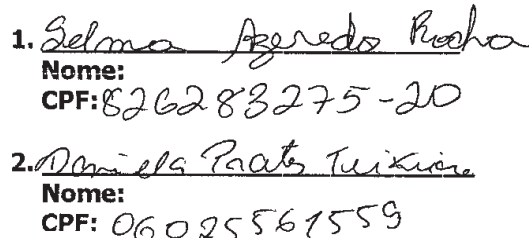 1. Selma Azeredo Rocha
Nome:
CPF: 826283275-20
2. Daniela Prates Teixeira
Nome:
CPF: 06025561559